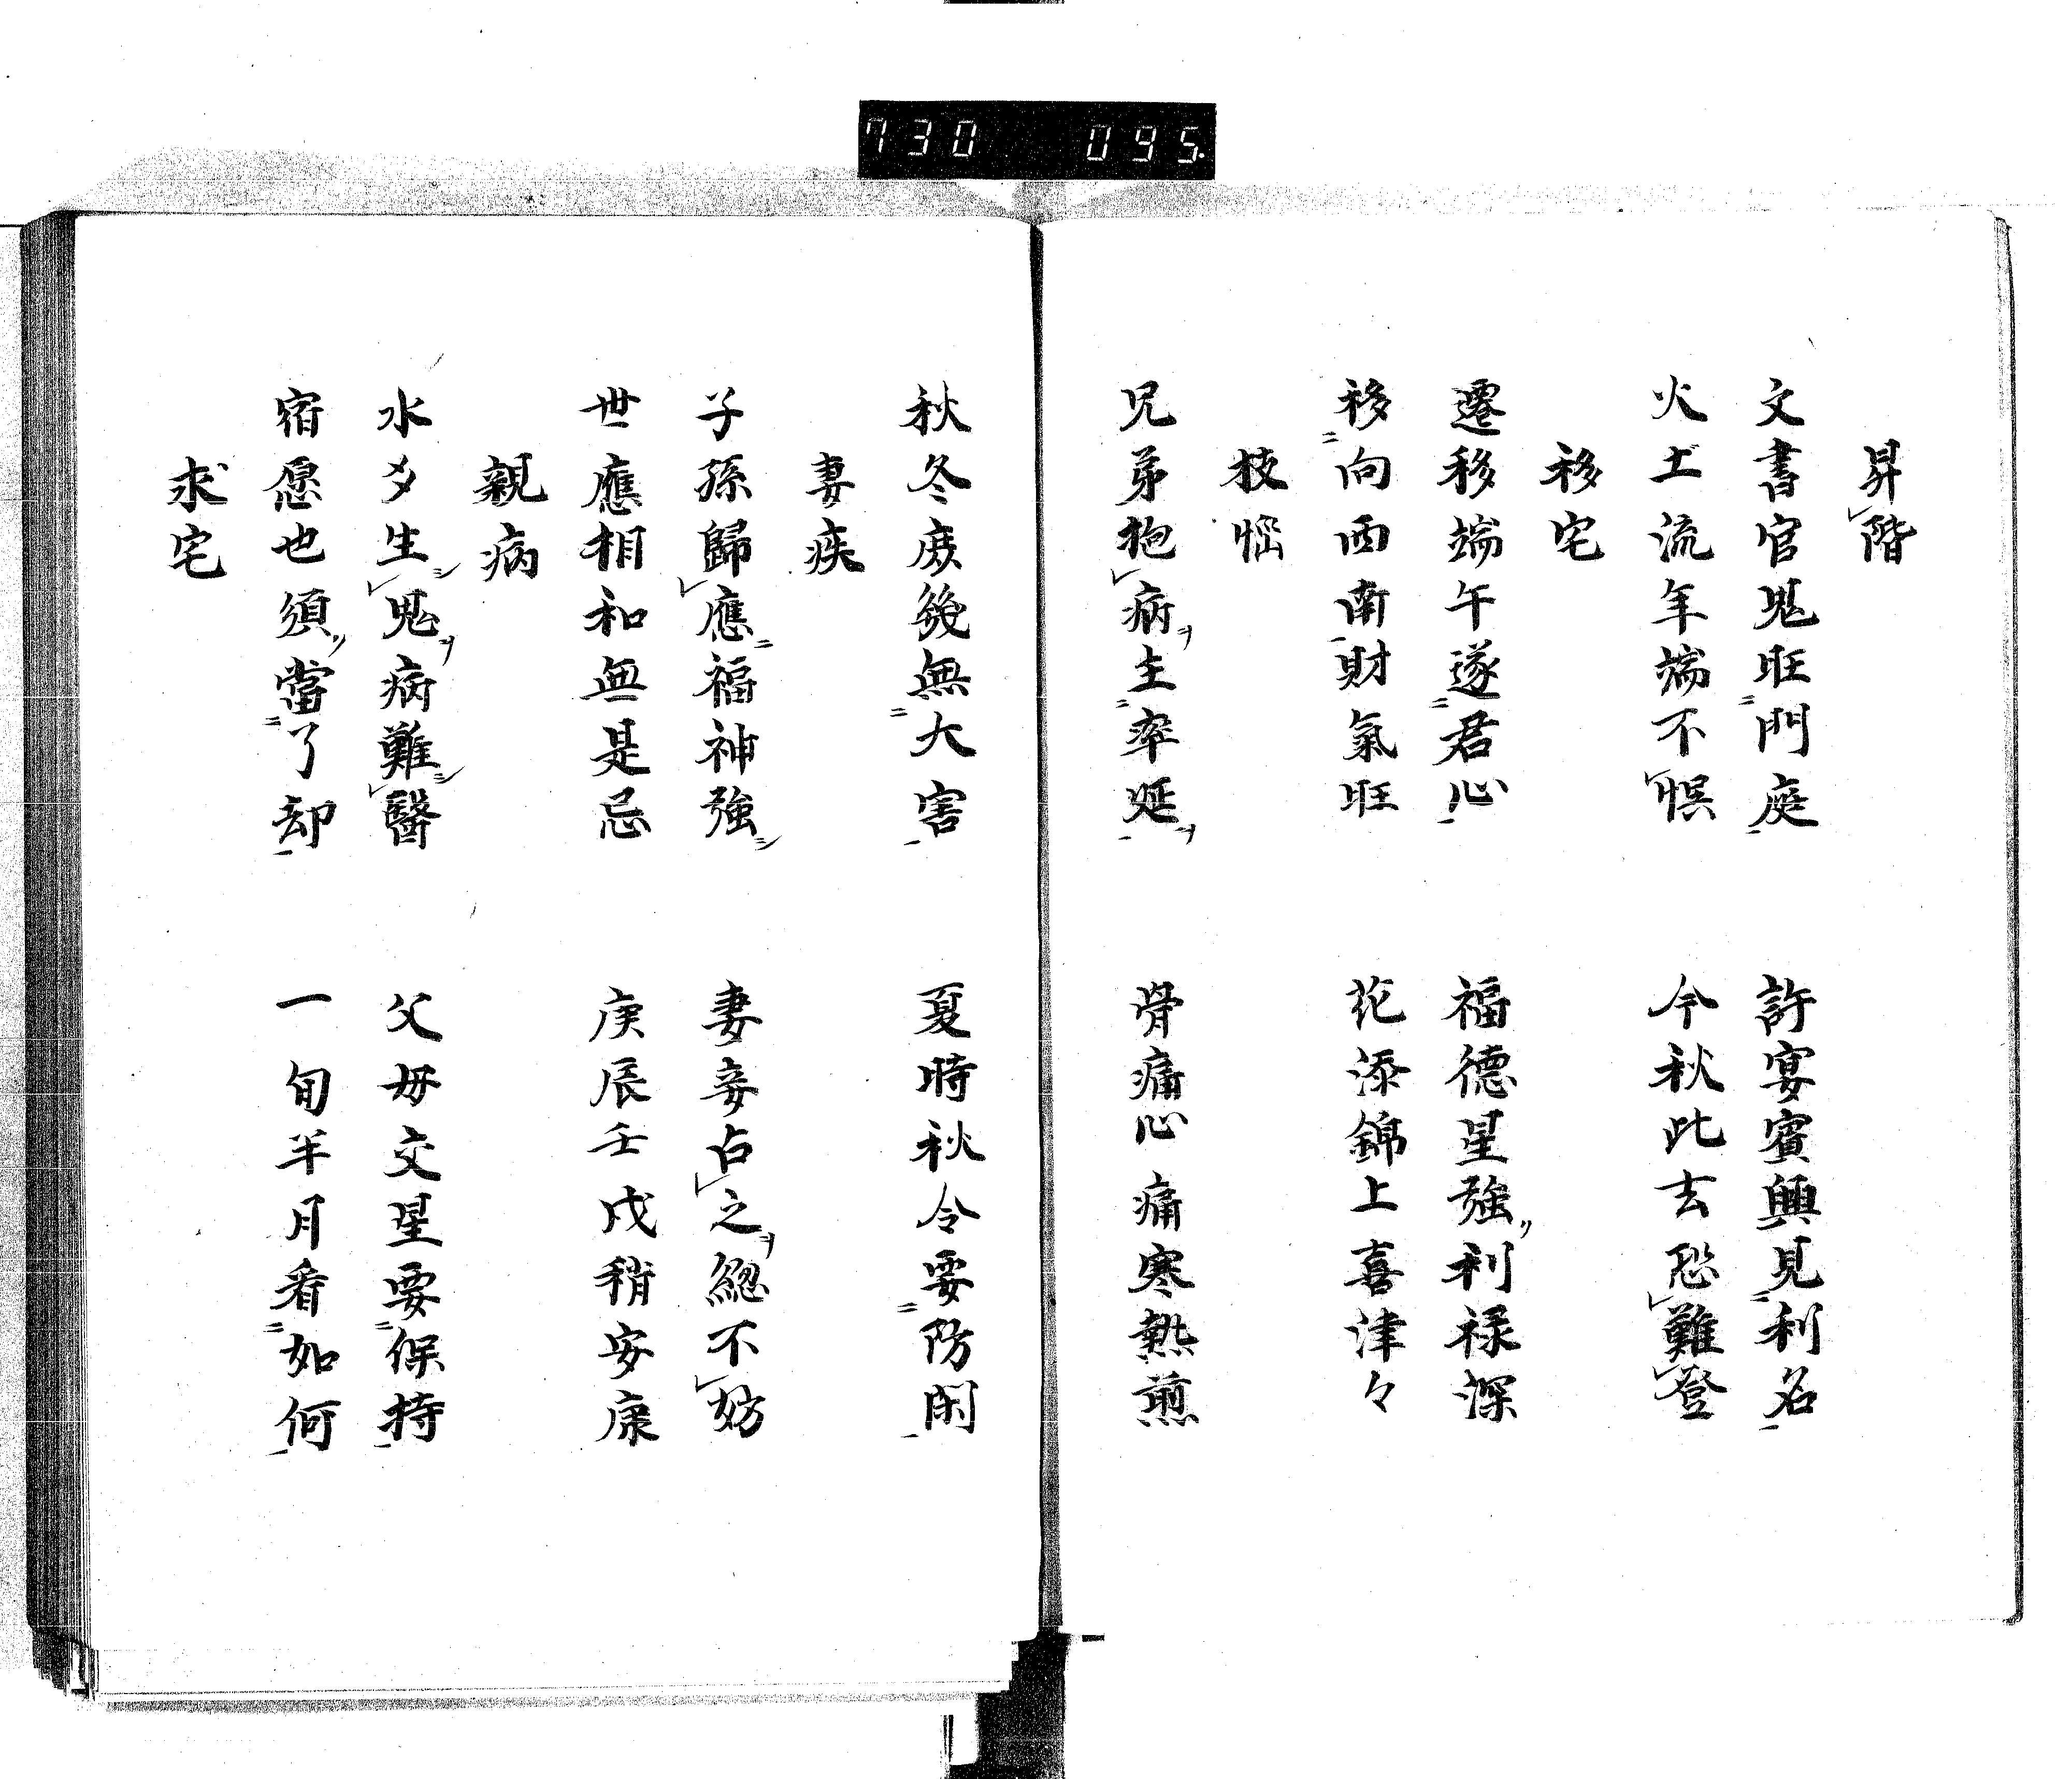 730 095
昇階
文書官鬼旺門庭 許宴賓興見利名
火土流年端不悞 今秋此去恐難登
移宅
遷移端午遂君心 福德星強利祿深
移向西南財氣旺 花添錦上喜津々
兄弟抱病主率延 骨痛心痛寒熱煎
秋冬庻幾無大害 夏時秋令要防閑
妻疾
子孫歸應福神強 妻妾占之緫不妨
世應相和無是忌 庚辰壬戌稍安康
親病
水爻生鬼病難醫 父母交星要保持
宿愿也須當了却 一旬半月看如何
求宅